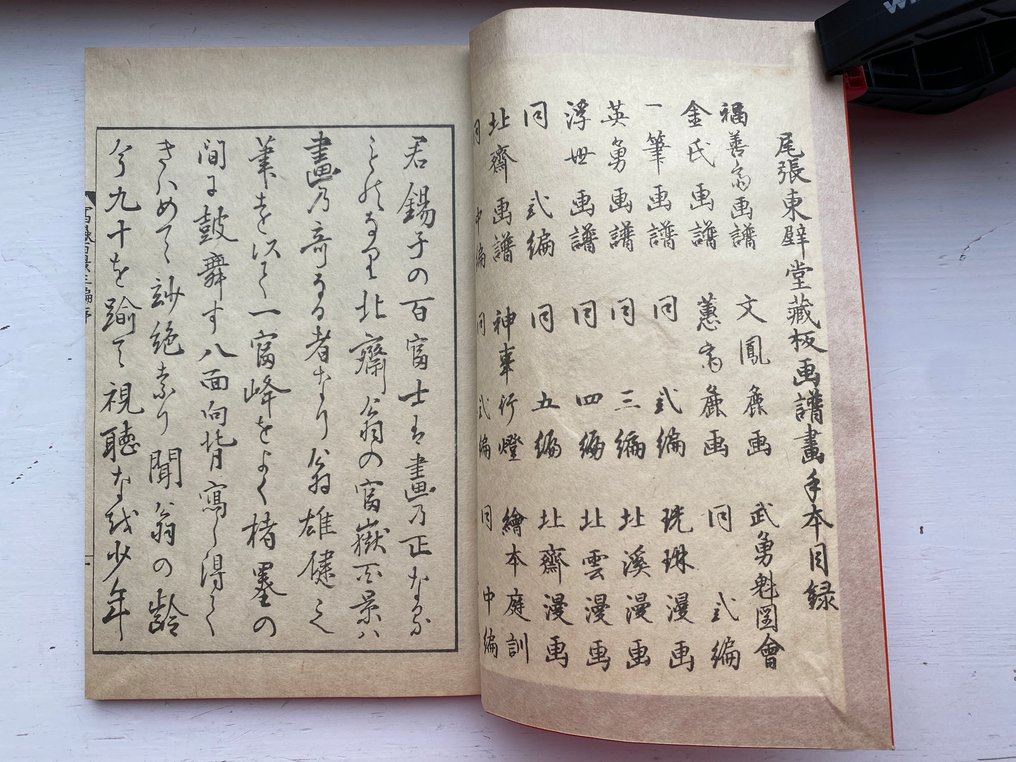 尾張東壁堂藏板画譜畫手本目録
福善斎画譜 文鳳麁画 武勇魁圖會
金氏画譜 蕙斎麁画 同 弍編
一筆画譜 同 弍編 珖琳漫画
英勇画譜 同 三編 北溪漫画
浮世画譜 同 四編 北雲漫画
同 弍編 同 五編 北齋漫画
北齋画譜 神事行燈 繪本庭訓
同 中編 同 弍編 同 中編
君錫子の百富士は畫乃正なる
なり北齋翁の富嶽百景ハ
畫乃奇なる者なり翁雄健之
筆を以て一富峰をよく楮墨の
間に鼓舞す八面向背寫し得て
きハめて玅絶なり聞翁の齢
今九十を踰て視聴なを少年